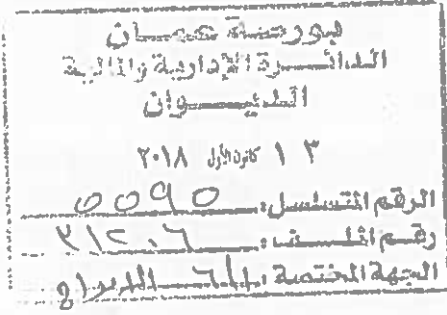 بورصة عمان
الدائرة الإدارية والمالية
الديوان
١٣ كانون الأول ٢٠١٨
الرقم المتسلسل: ٥٥٩٥
رقم الملف: ٢١٢٠٦
الجهة المختصة: